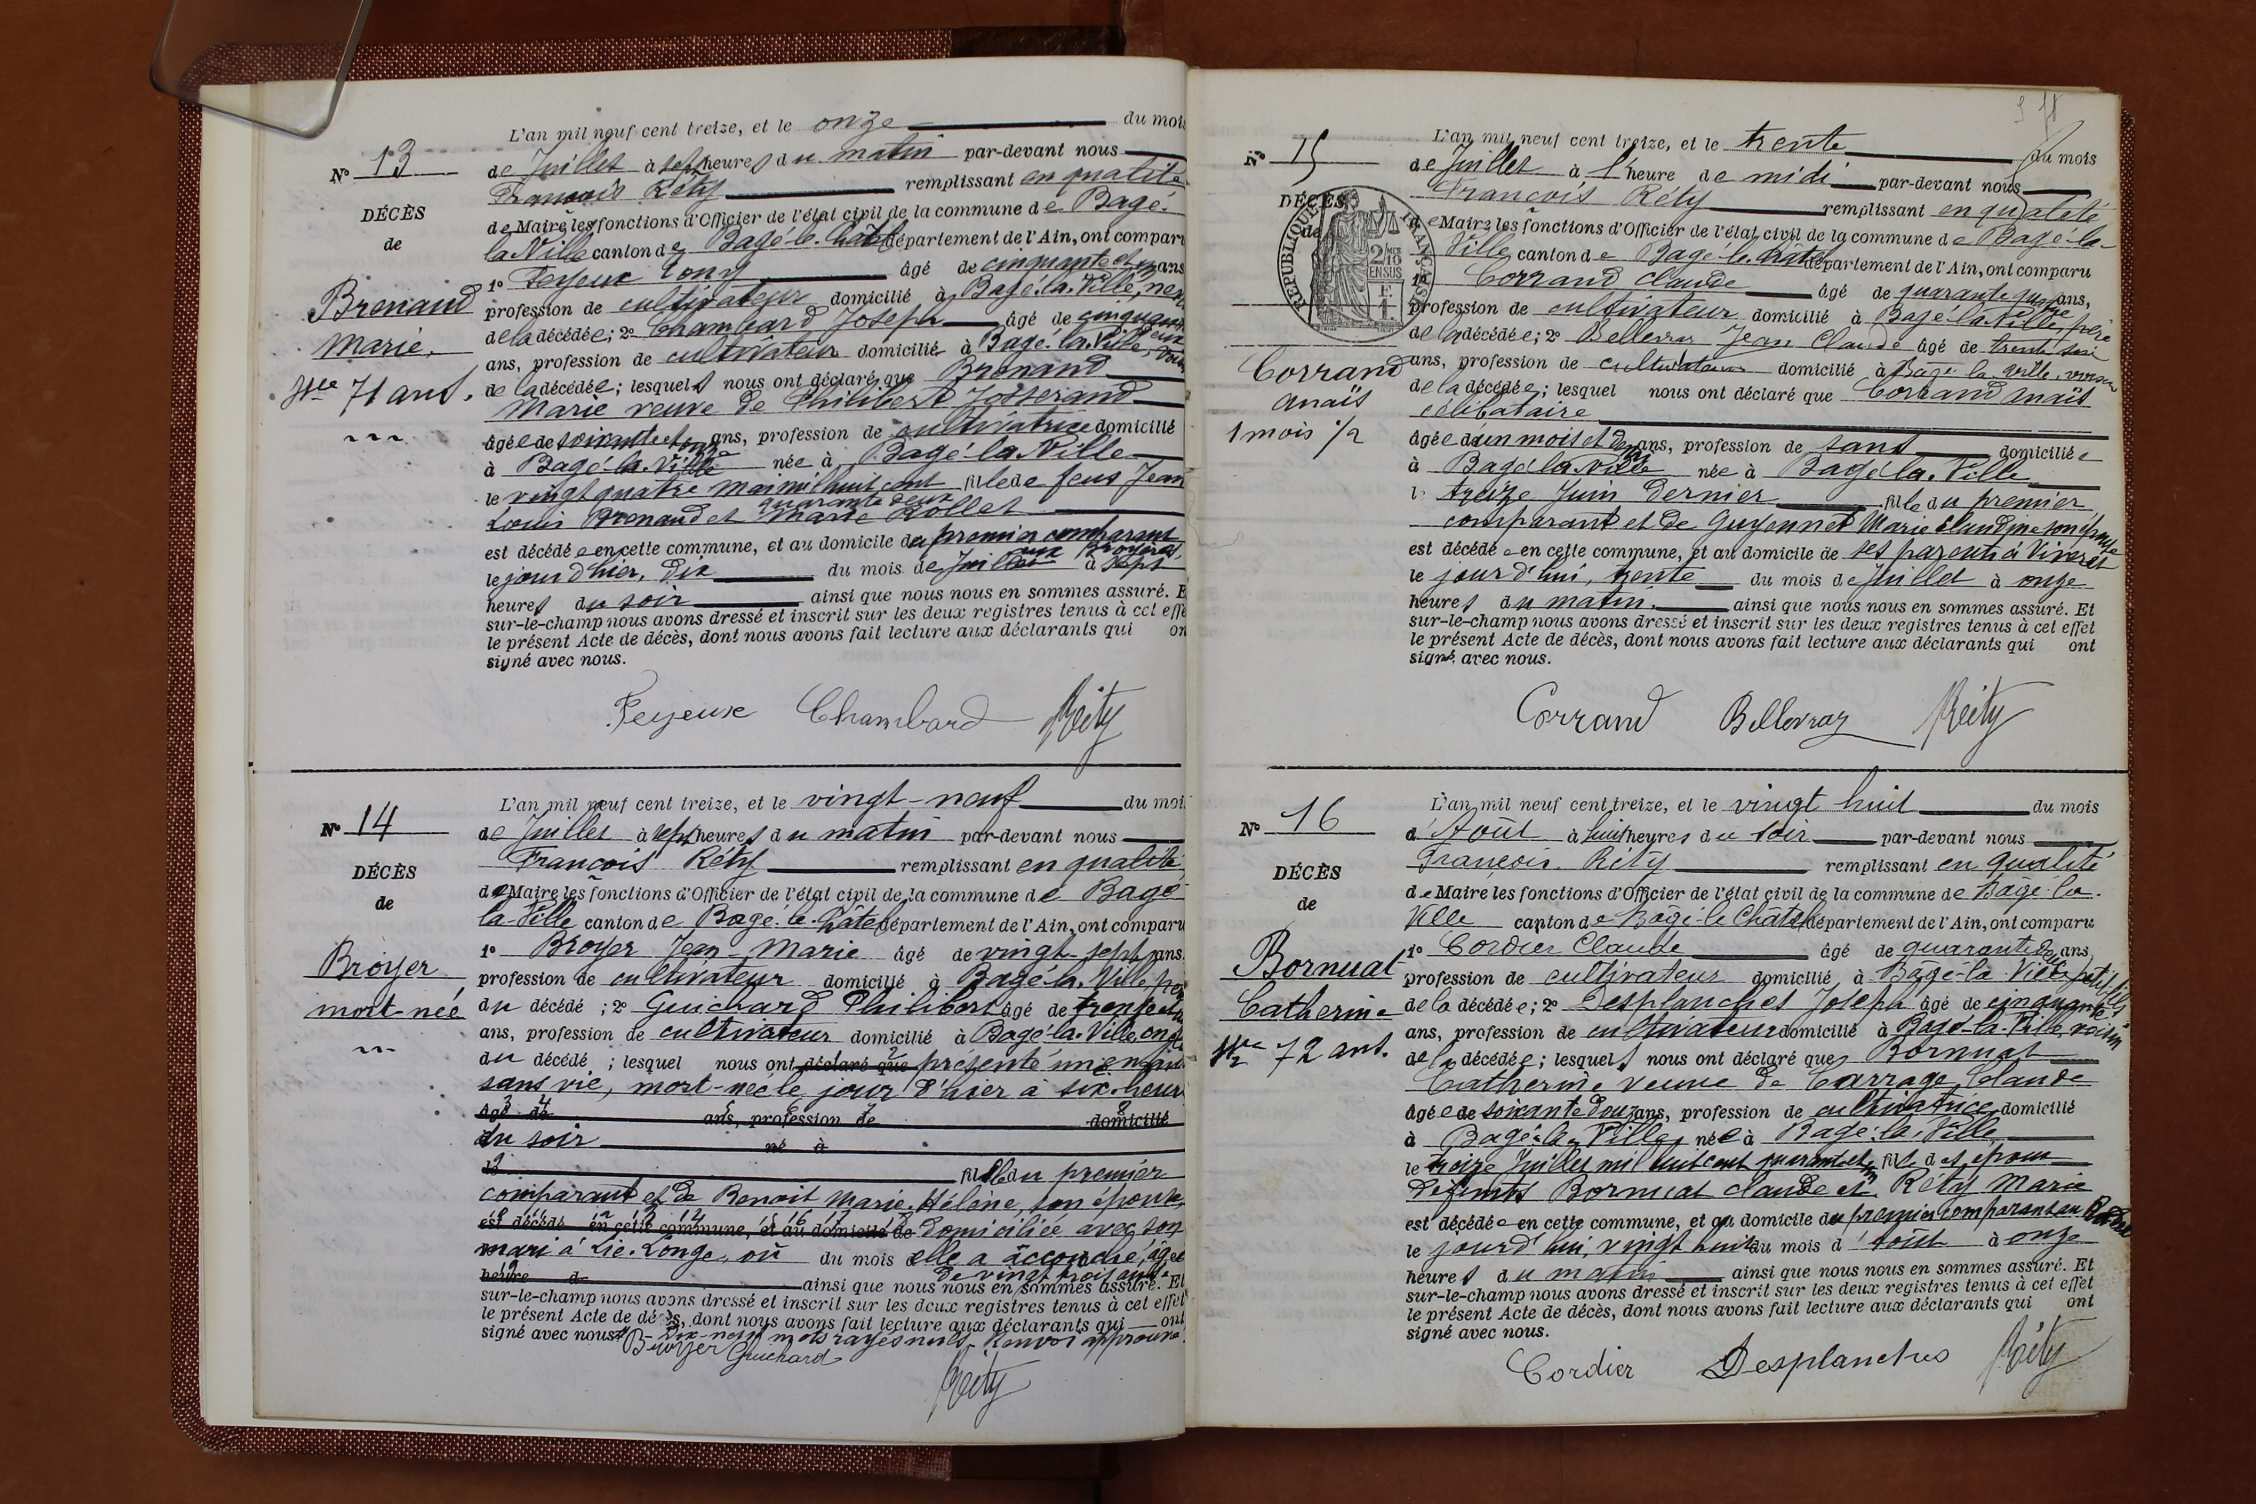 L'an mil neuf cent treize, et le onze du mois
N° 13
de Juillet à sept heures du matin par-devant nous
François Réty remplissant en qualité
DÉCÈS
de Maire les fonctions d'Officier de l'état civil de la commune de Bagé-
de
la Ville canton de Bagé-le-Châtel département de l'Ain, ont comparu
1° Feyeux Tony âgé de cinquante et un ans
Brenand
profession de cultivateur domicilié à Bagé-la-Ville, neveu
de la décédée; 2° Chambard Joseph âgé de cinquante deux
Marie.
ans, profession de cultivateur domicilié à Bagé-la-Ville, voisin
Vve 71 ans.
de la décédée; lesquels nous ont déclaré que Brenand
Marie veuve de Philibert Josserand
âgée de soixante et onze ans, profession de cultivatrice domicilié
à Bagé-la-Ville née à Bagé-la-Ville
le vingt quatre mai mil huit cent quarante deux fille de feus Jean
Louis Brenand et Marie Rollet
est décédée en cette commune, et au domicile du premier comparant aux Broyères,
le jour d'hier, dix du mois de Juillet à sept
heures du soir ainsi que nous nous en sommes assuré. E
sur-le-champ nous avons dressé et inscrit sur les deux registres tenus à cet effe
le présent Acte de décès, dont nous avons fait lecture aux déclarants qui on
signé avec nous.
Feyeux Chambard Réty
L'an mil neuf cent treize, et le vingt-neuf du moi
N° 14
de Juillet à sept heures du matin par-devant nous
François Réty remplissant en qualité
DÉCÈS
de Maire les fonctions d'Officier de l'état civil de la commune de Bagé-
de
la-Ville canton de Bagé-le-Châtel département de l'Ain, ont comparu
1° Broyer Jean-Marie âgé de vingt-sept ans
Broyer
profession de cultivateur domicilié à Bagé-la-Ville, père
mort-née
du décédé; 2° Guichard Philibert âgé de trente
ans, profession de cultivateur domicilié à Bagé-la-Ville, oncle
du décédé; lesquel nous ont déclaré que présenté un enfant
sans vie, mort-née le jour d'hier à six heures
âgé de ans, profession de domicilié
du soir né à
le fille du premier
comparant et de Benoit Marie Hélène, son épouse,
est décédé en cette commune, et au domicile de domiciliée avec son
mari à Lie-Longe, où du mois elle a accouché, âgée
heure d de vingt trois ans. ainsi que nous nous en sommes assuré. Et
sur-le-champ nous avons dressé et inscrit sur les deux registres tenus à cet effet
le présent Acte de décès, dont nous avons fait lecture aux déclarants qui ont
signé avec nous. Dix-neuf mots rayés nuls. Renvoi approuvé.
Broyer Guichard
Réty
L'an mil neuf cent treize, et le trente du mois
N° 15
de Juillet à l'heure de midi par-devant nous
François Réty remplissant en qualité
DÉCÈS
de Maire les fonctions d'Officier de l'état civil de la commune de Bagé-la-
de
Ville canton de Bagé-le-Châtel département de l'Ain, ont comparu
RÉPUBLIQUE FRANÇAISE
2/10 EN SUS
1F
1° Corrand Claude âgé de quarante quatre ans,
profession de cultivateur domicilié à Bagé-la-Ville, père
de la décédée; 2° Bellevraz Jean Claude âgé de trente six
Corrand
ans, profession de cultivateur domicilié à Bâgé la Ville, voisin
Anaïs
de la décédée; lesquel nous ont déclaré que Corrand Anaïs
célibataire
1 mois 1/2
âgée d'un mois et demi ans, profession de sans domiciliée
à Bagé la Ville née à Bagé-la-Ville
le treize Juin dernier fille du premier
comparant et de Guyennet Marie Claudine son épouse
est décédée en cette commune, et au domicile de ses parents à Viverêt
le jour d'hui, trente du mois de Juillet à onze
heures du matin. ainsi que nous nous en sommes assuré. Et
sur-le-champ nous avons dressé et inscrit sur les deux registres tenus à cet effet
le présent Acte de décès, dont nous avons fait lecture aux déclarants qui ont
signé avec nous.
Corrand Bellevraz Réty
L'an mil neuf cent treize, et le vingt huit du mois
N° 16
d'Août à huit heures du soir par-devant nous
François Réty remplissant en qualité
DÉCÈS
de Maire les fonctions d'Officier de l'état civil de la commune de Bâgé-la-
de
Ville canton de Bâgé-le-Châtel département de l'Ain, ont comparu
1° Cordier Claude âgé de quarante deux ans
Bornuat
profession de cultivateur domicilié à Bâgé-la-Ville, petit fils
Catherine
de la décédée; 2° Desplanches Joseph âgé de cinquante
ans, profession de cultivateur domicilié à Bagé-la-Ville, voisin
Vve 72 ans.
de la décédée; lesquels nous ont déclaré que Bornuat
Catherine veuve de Carrage Claude
âgée de soixante douze ans, profession de cultivatrice domicilié
à Bagé-la-Ville, née à Bagé-la-Ville
le treize Juillet mil huit cent quarante et un fille des époux
défunts Bornuat Claude et Réty Marie
est décédée en cette commune, et au domicile du premier comparant au
le jour d'hui, vingt huit du mois d'août à onze
heures du matin ainsi que nous nous en sommes assuré. Et
sur-le-champ nous avons dressé et inscrit sur les deux registres tenus à cet effet
le présent Acte de décès, dont nous avons fait lecture aux déclarants qui ont
signé avec nous.
Cordier Desplanches Réty